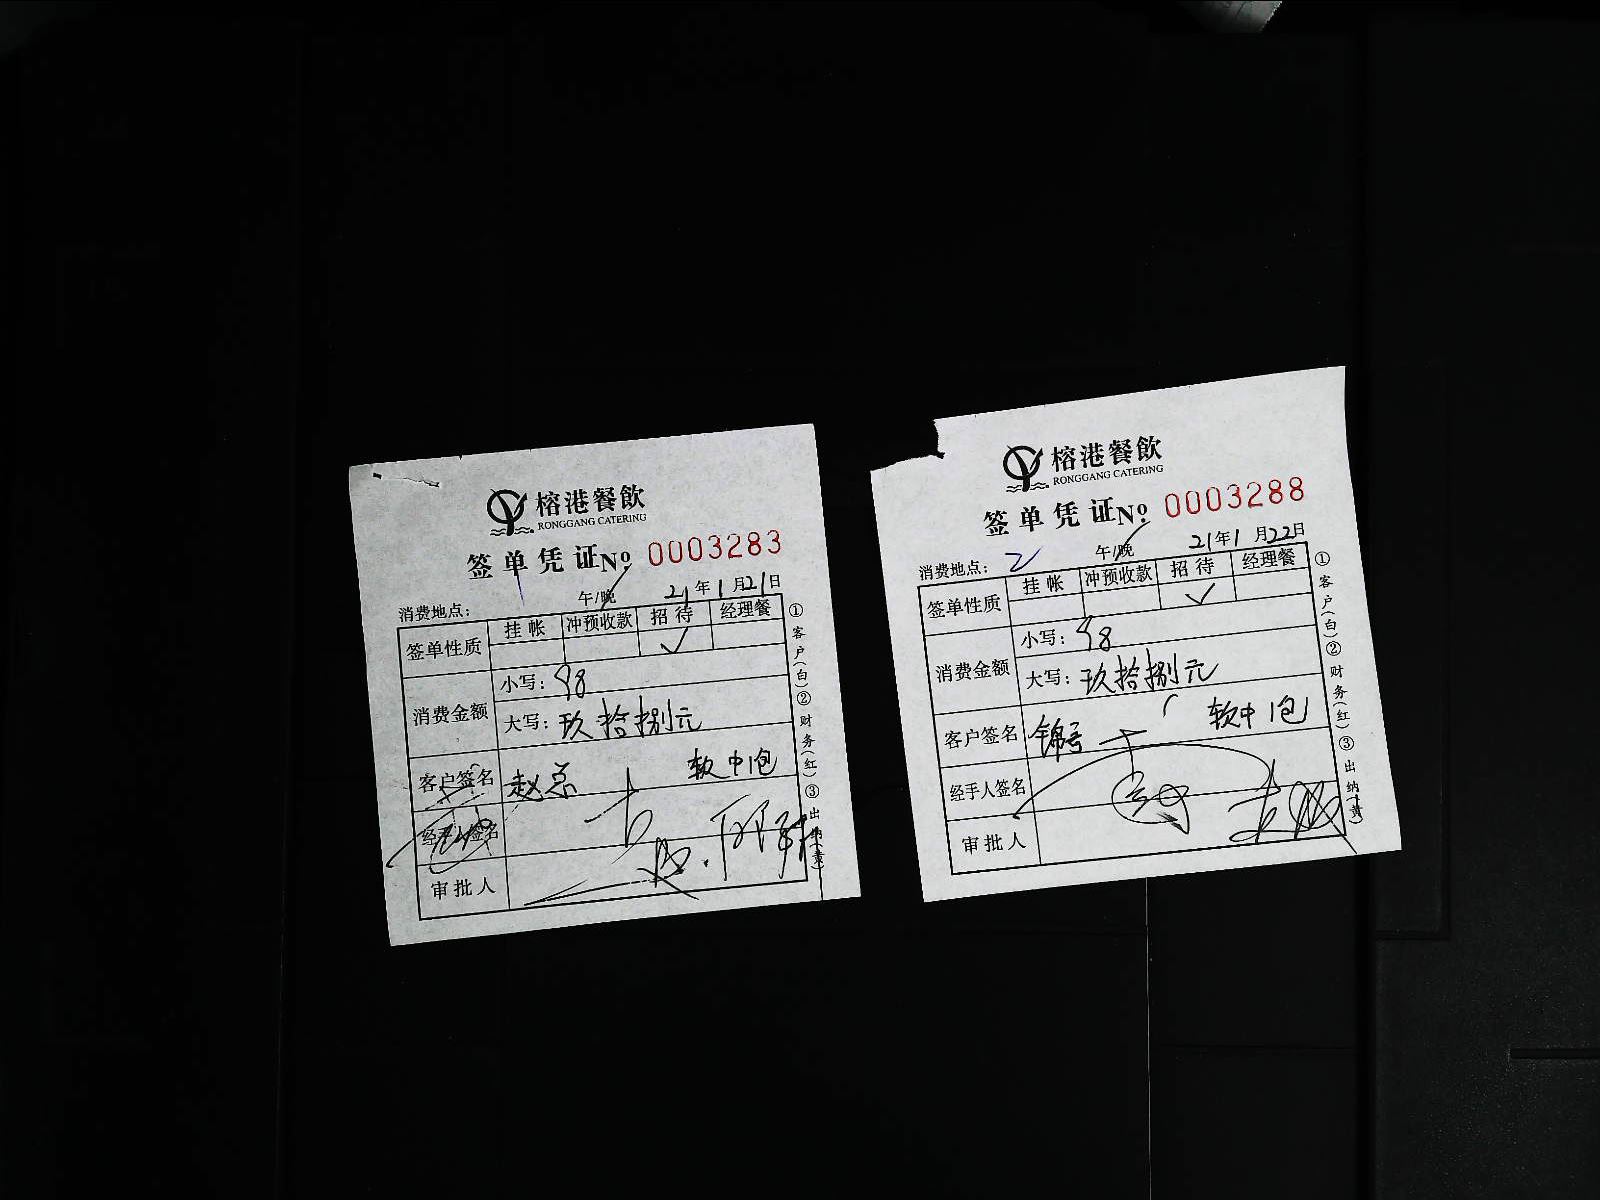 榕港餐飲
RONGGANG CATERING
签单凭证 No 0003283
消费地点： 午/晚 21年1月21日
签单性质 挂帐 冲预收款 招待 经理餐
✓
消费金额 小写：98
大写：玖拾捌元
客户签名 赵总 软中1包
经手人签名
审批人
①客户(白)②财务(红)③出纳(黄)
榕港餐飲
RONGGANG CATERING
签单凭证 No 0003288
消费地点：2 午/晚 21年1月22日
签单性质 挂帐 冲预收款 招待 经理餐
✓
消费金额 小写：98
大写：玖拾捌元
客户签名 软中1包
经手人签名
审批人
①客户(白)②财务(红)③出纳(黄)